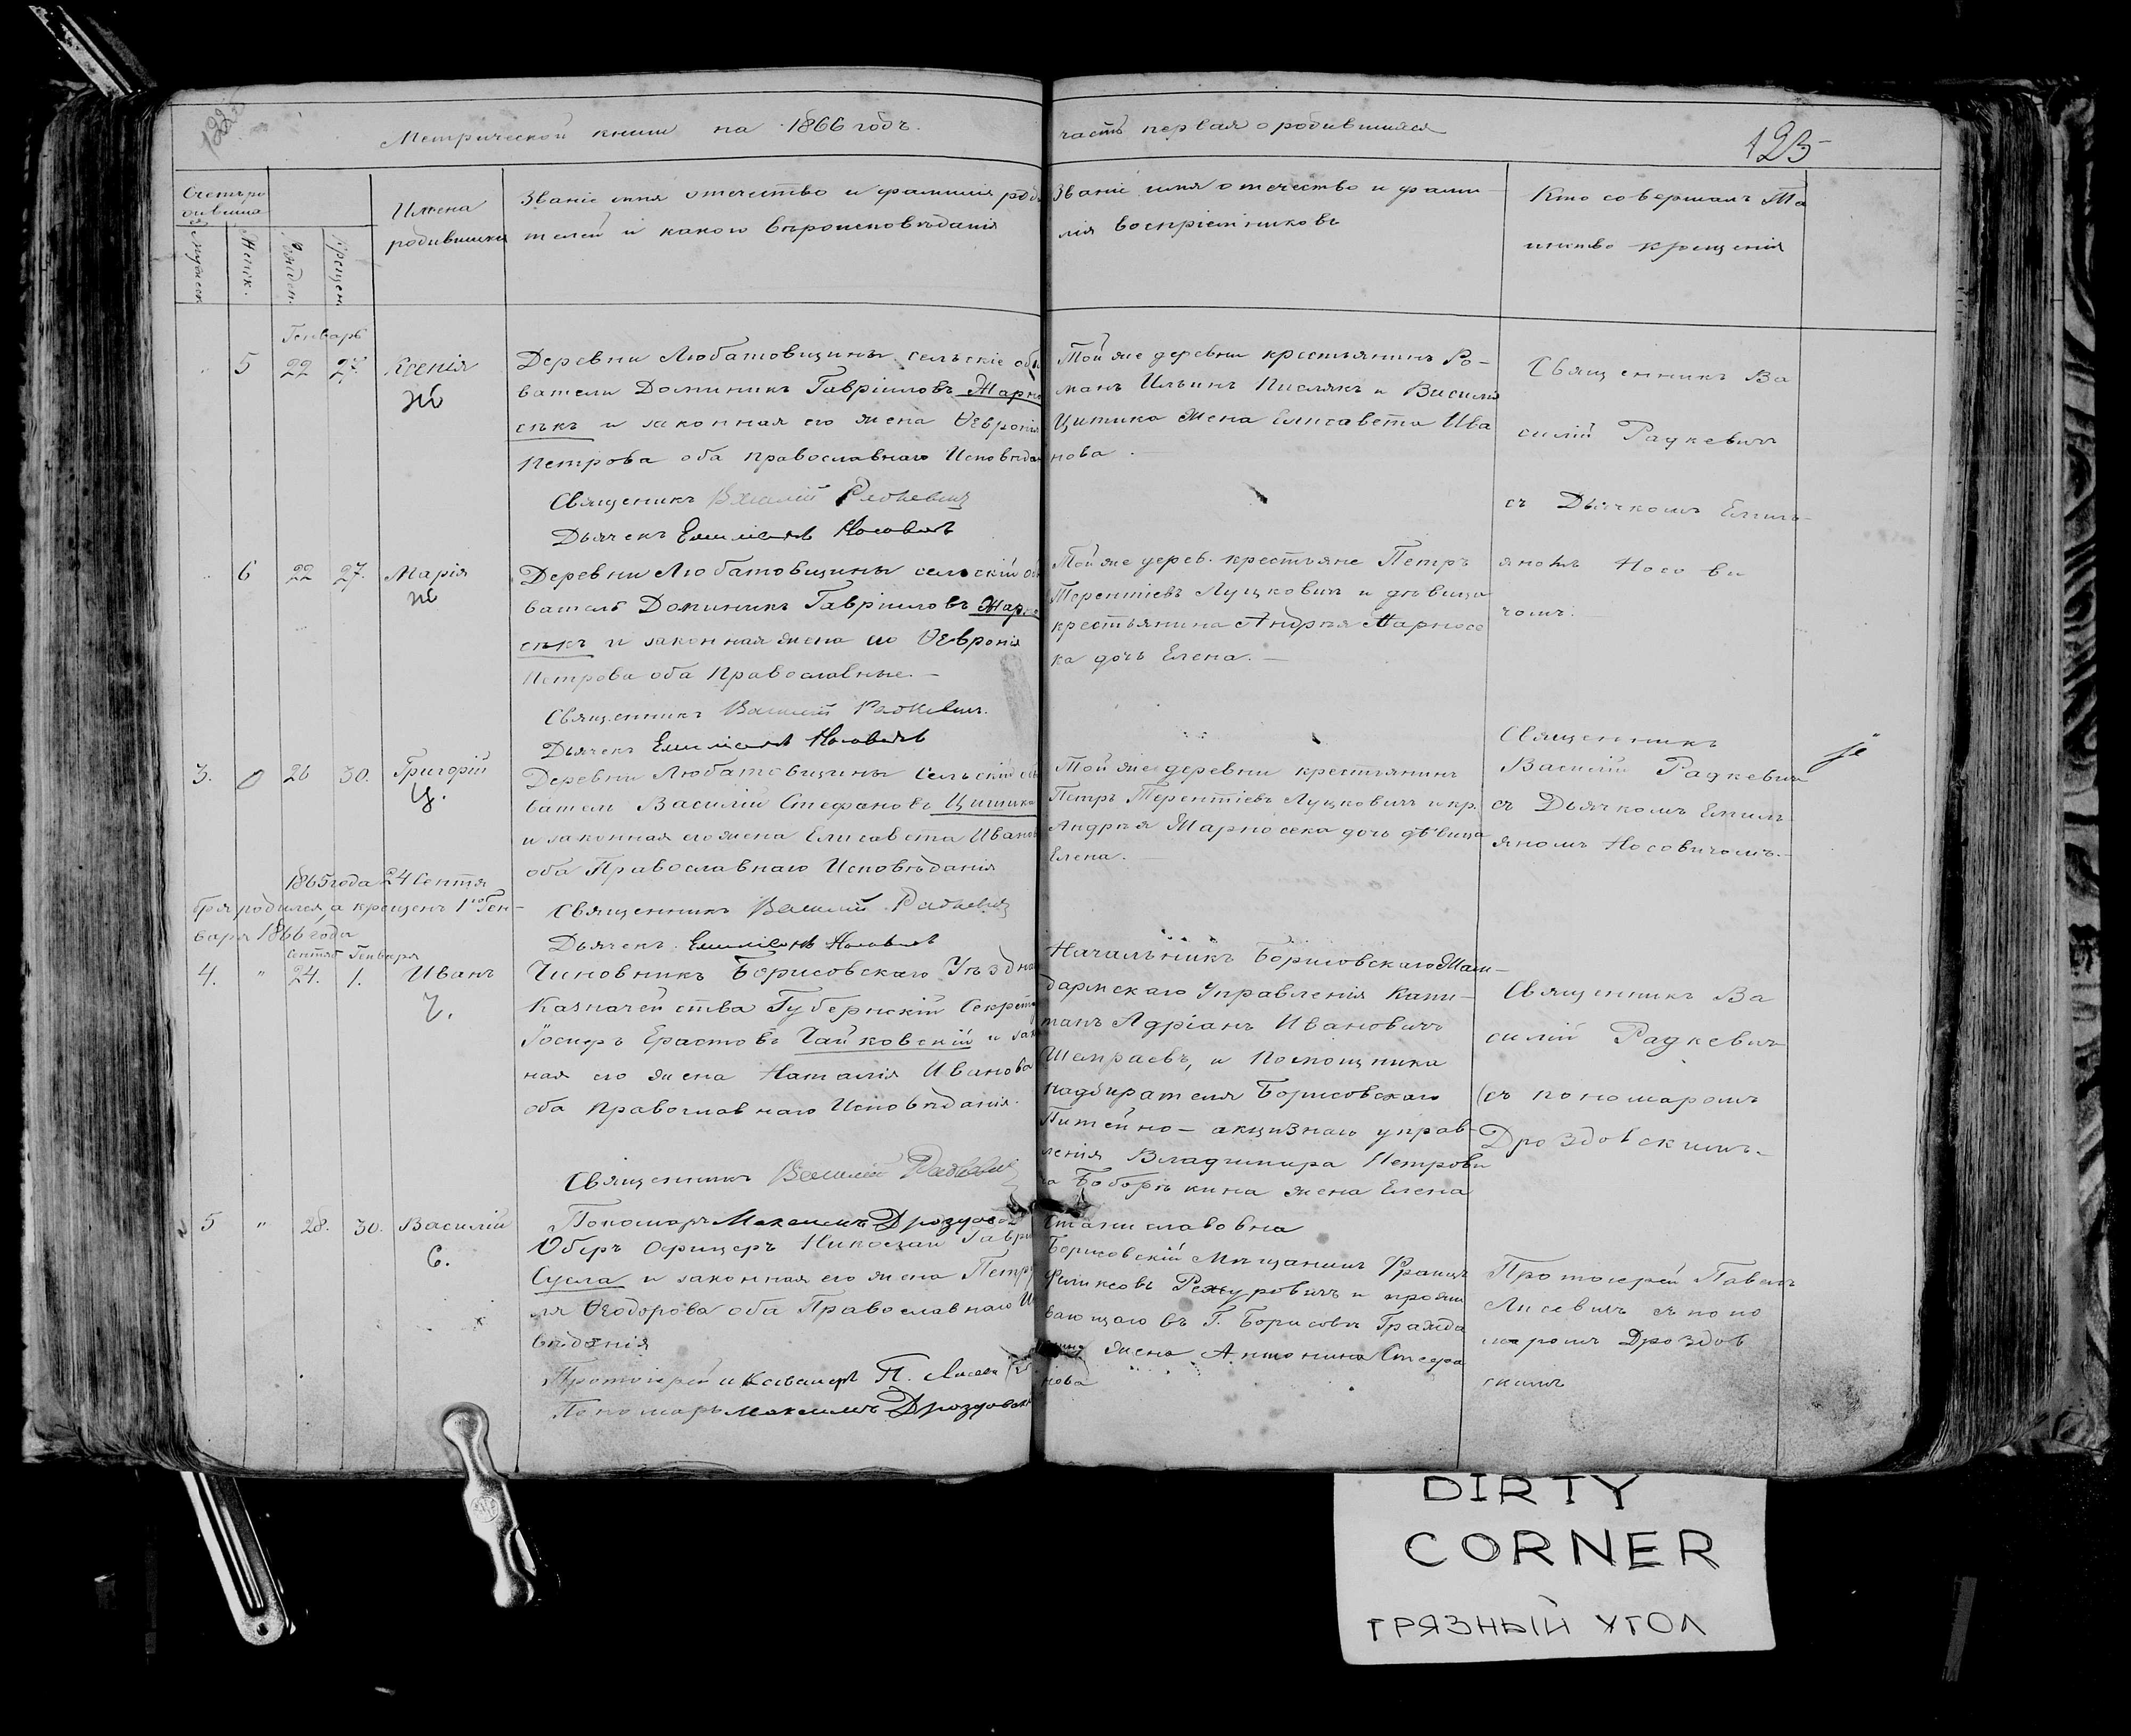 Метрической книги на 1866 годъ.
часть первая о родившихся
123
Счетъ ро
дивших
ся
Мужеск.
Женск.
Рожден.
Крещен.
Имена
родившихся
Званіе имя отчество и фамилія роди
телей и какого вѣроисповѣданія
Званіе имя отчество и фами
лія воспріемниковъ
Кто совершалъ Та
инство крещенія
Генварь
5 22 27. Ксенія
Ж
Деревни Любатовщины сельскіе обы
ватели Доминикъ Гавріиловъ Жарно
сѣкъ и законная его жена Ѳевронія
Петрова оба православнаго Исповѣда
Священникъ Василій Радкевичъ
Дьячекъ Емиліянъ Носовичъ
Той же деревни крестьянинъ Ро-
манъ Ильинъ Пислякъ и Василія
Цитика жена Елисавета Ива
нова.
Священникъ Ва
силій Радкевичъ
съ Дьячкомъ Емиль-
яномъ Носови
чомъ.
6 22 27. Марія
Ж
Деревни Любатовщины сельскій обы
ватель Доминикъ Гавріиловъ Жарно
сѣкъ и законная жена его Ѳевронія
Петрова оба Православные.
Священникъ Василій Радкевичъ.
Дьячекъ Емиліянъ Носовичъ
Той же дерев. крестьяне Петръ
Терентіевъ Луцковичъ и дѣвица
крестьянина Андрея Жарносе
ка дочь Елена.
3. 26 30. Григорій
Ц.
Деревни Любатовщины Сельскій обы
ватель Василій Стефановъ Цитикъ
и законная его жена Елисавета Иванов
оба Православнаго Исповѣданія
Священникъ Василій Радкевичъ
Дьячекъ Емиліянъ Носовичъ
Той же деревни крестьянинъ
Петръ Терентіевъ Луцковичъ и кр.
Андрея Жарносека дочь дѣвица
Елена.
Священникъ
Василій Радкевичъ
съ Дьячкомъ Емиль
яномъ Носовичомъ.
1865 года 24 Сентя
бря родился, а крещенъ 1го Ген-
варя 1866 года
Сентяб Генваря
4. " 24. 1. Иванъ
Ч.
Чиновникъ Борисовскаго Уѣздна
Казначейства Губернскій Секрета
Ерастовъ Чайковскій и зак
ная его жена Наталія Иванова
оба православнаго Исповѣданія.
Священникъ Василій Радкевичъ
Пономарь Максимъ Дроздовск
Начальникъ Борисовскаго Жан-
дармскаго Управленія Капи-
танъ Адріанъ Ивановичъ
и Помощника
надзирателя Борисовскаго
Питейно-акцизнаго управ-
ленія Владимира Петрови
ча Боборыкина жена Елена
Станиславовна
Священникъ Ва
силій Радкевичъ
съ пономаромъ
Дроздовскимъ.
5 " 28. 30. Василій
С.
Оберъ Офицеръ Николай Гаври
Сусла и законная его жена Петру
ля Ѳеодорова оба Православнаго Ис
вѣданія
Протоіерей и Кавалеръ П. Лисеви
Пономарь Максимъ Дроздовск
Борисовскій Мѣщанинъ Францъ
Феликсовъ и прожи
вающаго въ Г. Борисовѣ Гражда
нина жена Антонина Стефа
нова
Протоіерей Павелъ
Лисевичъ съ поно
маромъ Дроздов
скимъ
DIRTY
CORNER
ГРЯЗНЫЙ УГОЛ